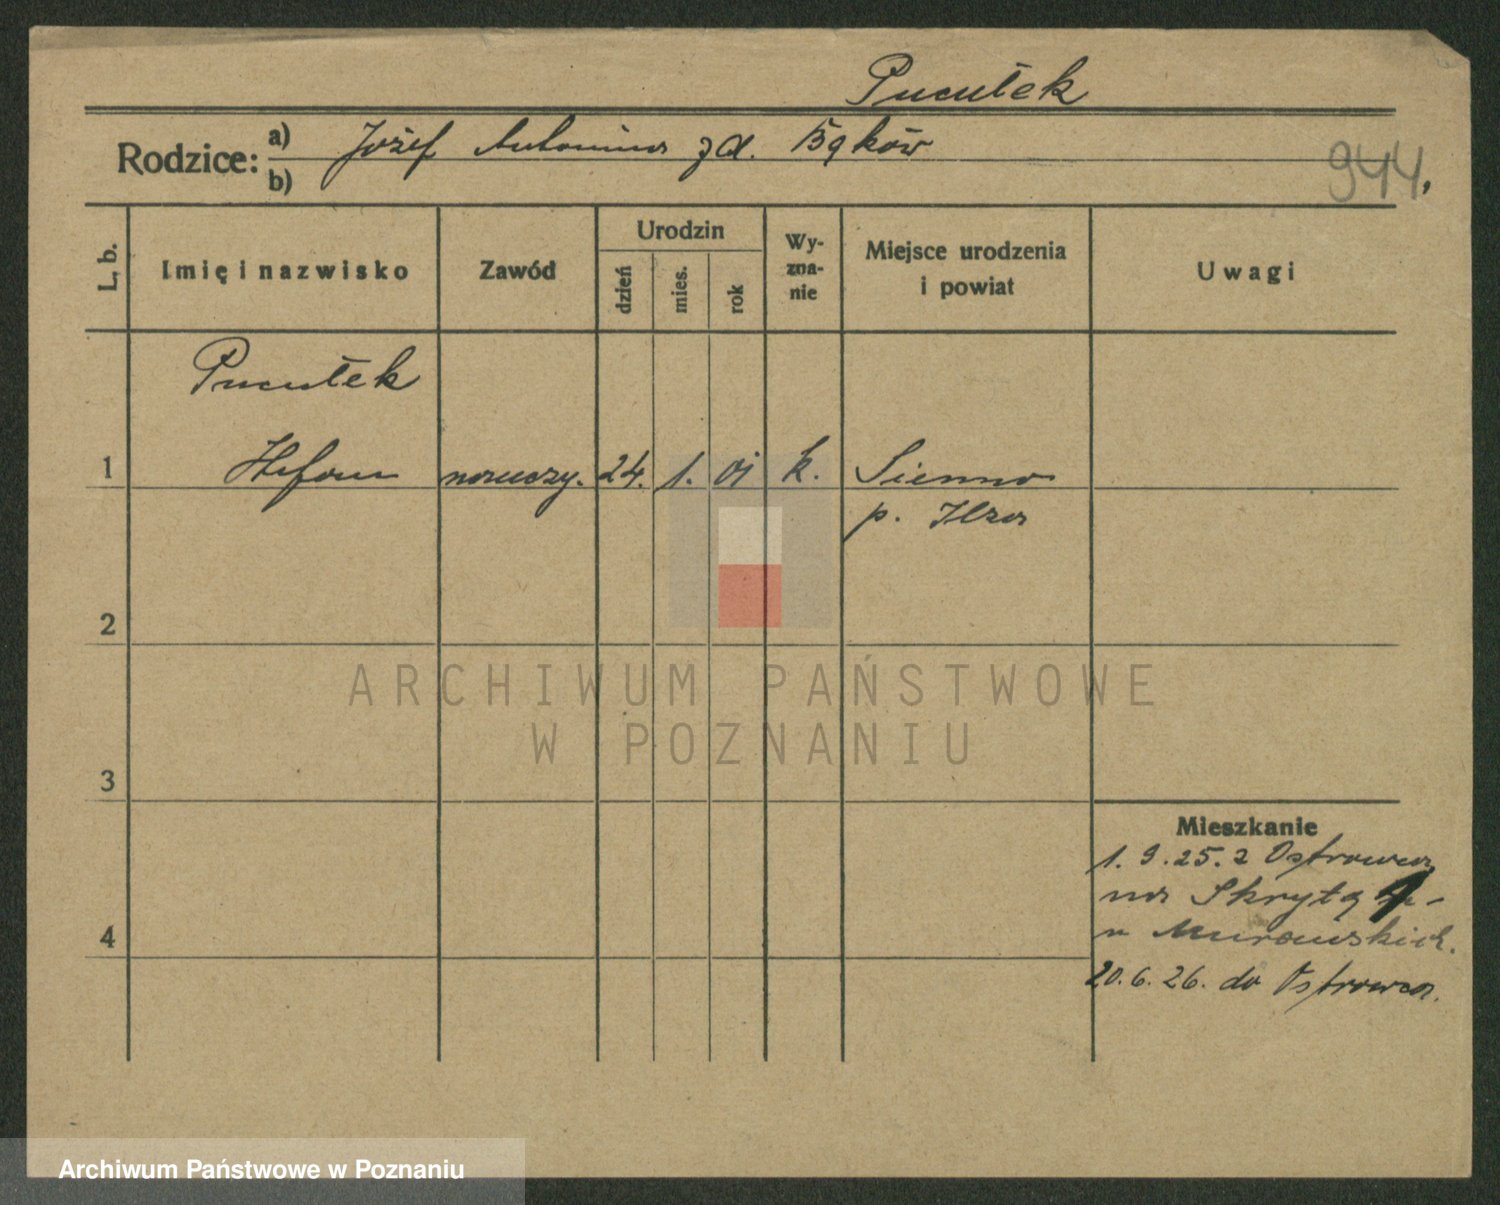 Pucułek
Rodzice:
a) Józef Antonina z d. Bąków
b)
944.
L. b.
Imię i nazwisko
Zawód
Urodzin
dzień
mies.
rok
Wy-
zna-
nie
Miejsce urodzenia
i powiat
Uwagi
Pucułek
1 Stefan nauczy. 24. 1. 01 k. Sienno
p. Ilza
2
3
4
Mieszkanie
1. 9. 25. z Ostrowca
na Skrytą
u Murawskich.
20. 6. 26. do Ostrowca.
ARCHIWUM PAŃSTWOWE
W POZNANIU
Archiwum Państwowe w Poznaniu